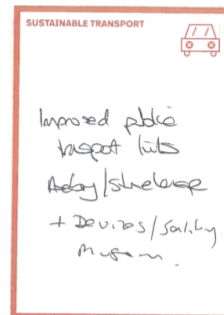 SUSTAINABLE TRANSPORT
Improved public
transport links
/Stonehenge
+ Devizes/Salisbury
Museum.